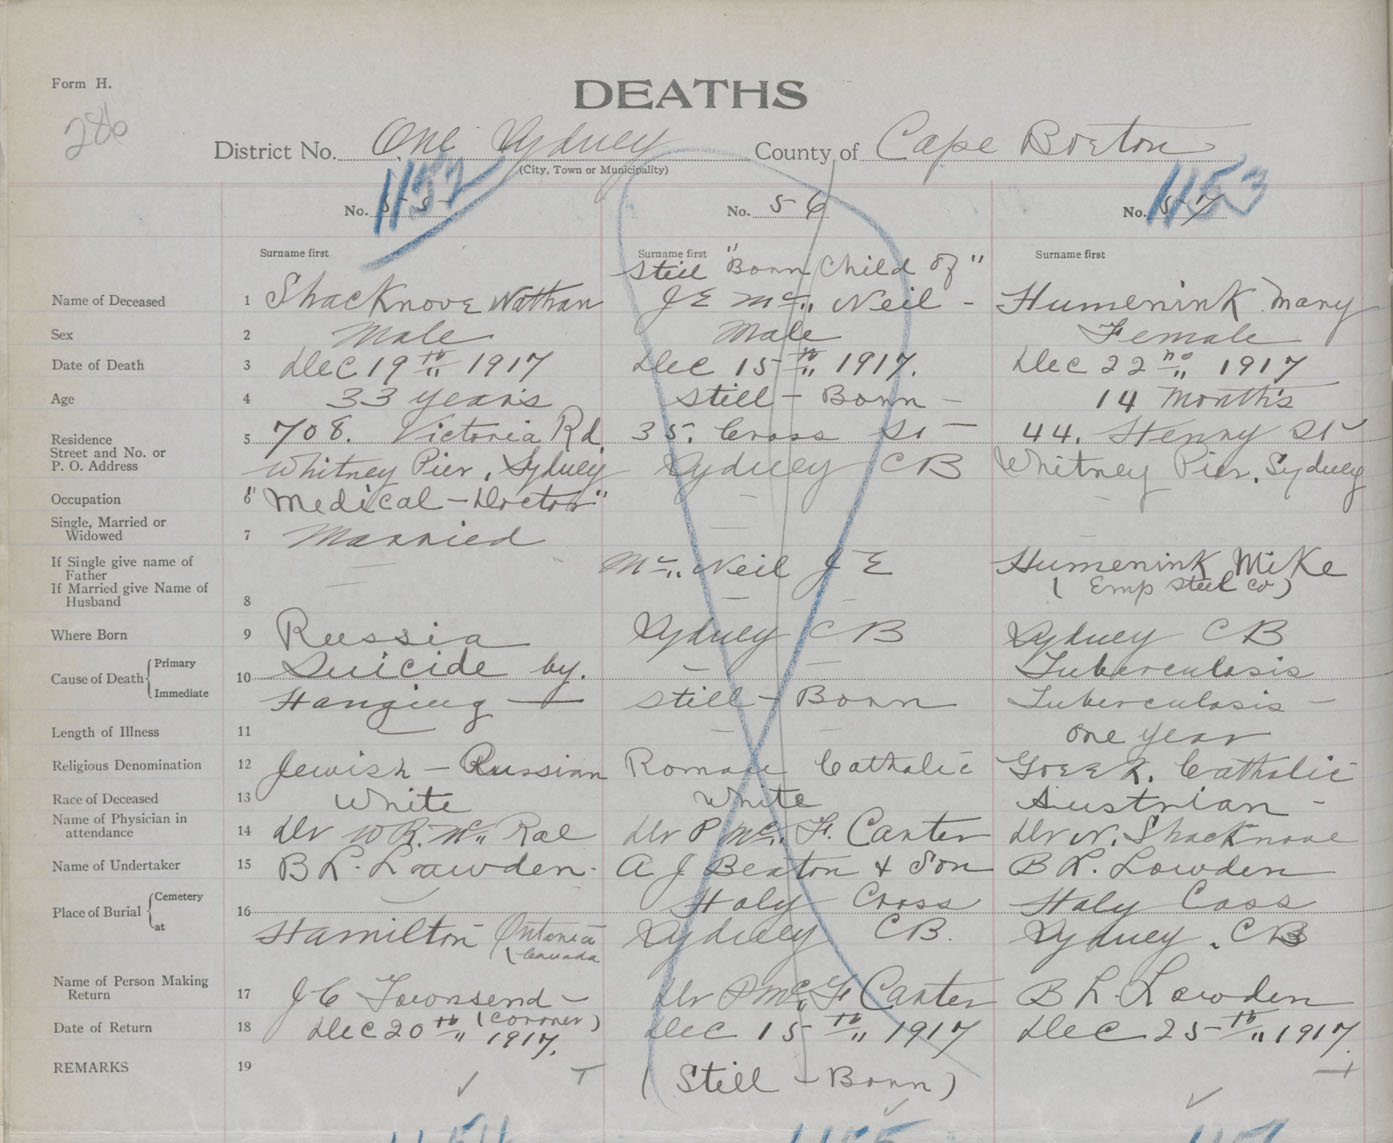 Form H.
286
DEATHS
District No. One Sydney County of Cape Breton
(City, Town or Municipality)
1152 1153
No. 55 No. 56 No. 57
Surname first Surname first Surname first
Still "Born Child of"
Name of Deceased 1 Shacknove Nathan J E Mc Neil - Humenink Mary
Sex 2 Male Male Female
Date of Death 3 Dec 19th 1917 Dec 15th 1917. Dec 22nd 1917
Age 4 33 years Still - Born - 14 Months
Residence 5 708. Victoria Rd 35. Cross St 44. Henry St
Street and No. or
P. O. Address Whitney Pier, Sydney Sydney C B Whitney Pier, Sydney
Occupation 6 "Medical - Doctor" - -
Single, Married or
Widowed 7 Married - -
If Single give name of
Father Mc Neil J E Humenink Mike
If Married give Name of (Emp Steel Co)
Husband 8
Where Born 9 Russia Sydney C B Sydney C B
Cause of Death Primary 10 Suicide by. - Tuberculosis
Immediate Hanging - Still - Born Tuberculosis -
Length of Illness 11 - - One year
Religious Denomination 12 Jewish - Russian Roman Catholic Greek. Catholic
Race of Deceased 13 White White Austrian -
Name of Physician in
attendance 14 Dr W R. Mc Rae Dr P Mc. F. Carter Dr N. Shacknove
Name of Undertaker 15 B L. Lawden. A J Beaton & Son B L. Lowden
Place of Burial Cemetery 16 Holy Cross Holy Coss
at Hamilton Ontario Sydney C B. Sydney. C B
(Canada
Name of Person Making
Return 17 J C Townsend - Dr P Mc F Carter B L. Lowden
(Coroner)
Date of Return 18 Dec 20th 1917. Dec 15th 1917 Dec 25th 1917.
REMARKS 19 (Still - Born)
1154 1155